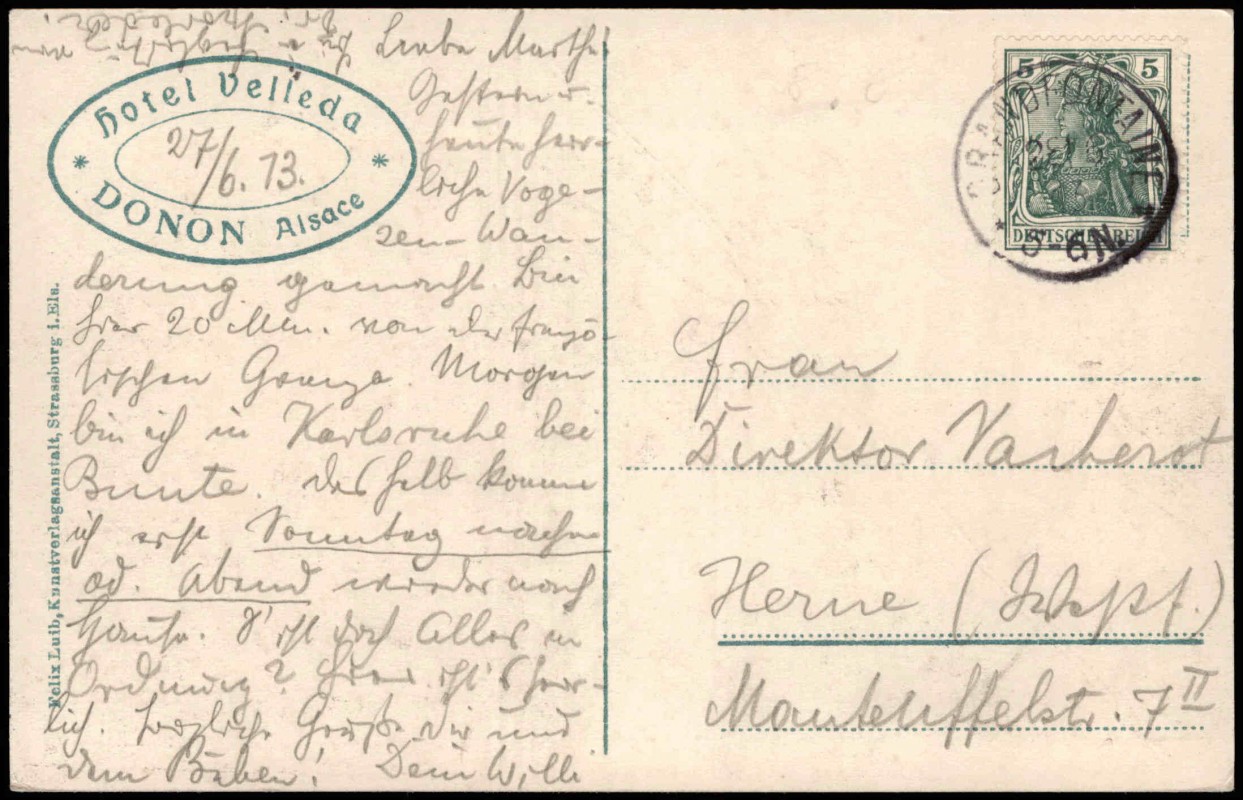 Hotel Velleda
27/6. 13.
DONON Alsace
Liebe Marthe!
Gestern u.
heute herr-
liche Voge-
sen-Wan-
derung gemacht. Bin
hier 20 Min. von der franzö-
sischen Grenze. Morgen
bin ich in Karlsruhe bei
Bunte. Deshalb komme
ich erst Sonntag nachm
od. Abend wieder nach
Hause. S' ist doch Alles in
Ordnung? Hier ist's herr-
lich. Herzliche Grüße Dir und
dem Büben! Dein Willi
Felix Luib, Kunstverlagsanstalt, Strassburg i. Els.
5 5
DEUTSCHES REICH
GRANDFONTAINE
5-6N.
Frau
Direktor Vacherot
Herne (Westf.)
Manteuffelstr. 7 II